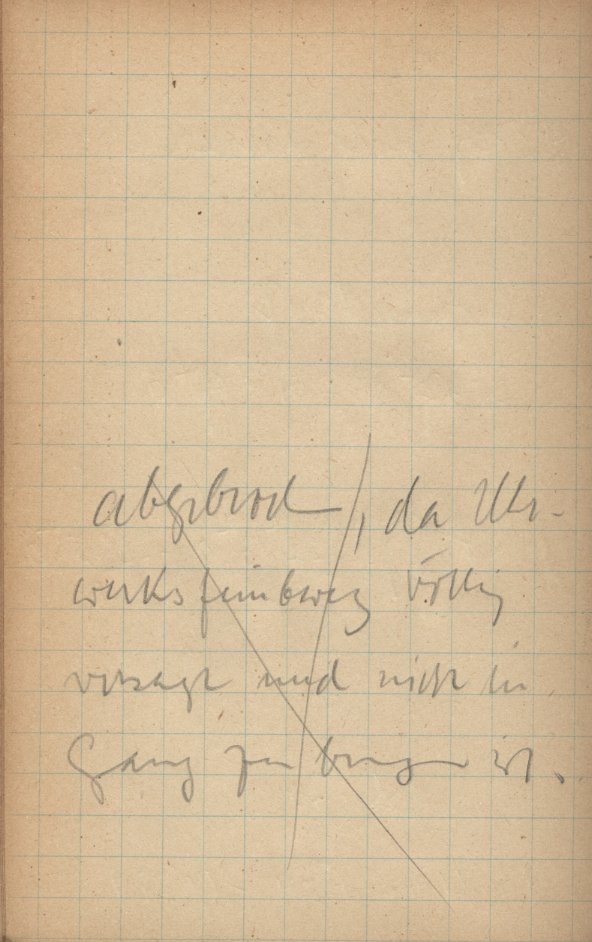 abgebroch, da Uhr-
werksfeinbeweg völlig
versagt und nicht in
Gang zu bringen ist.